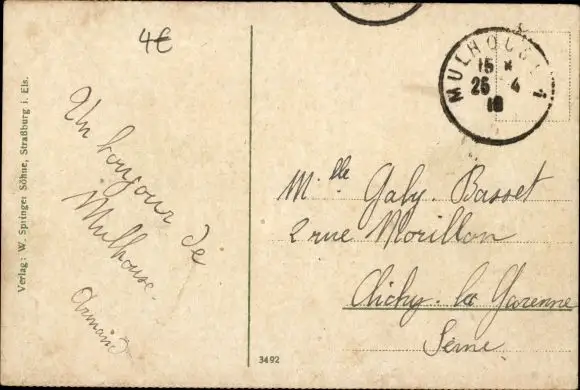 4€
Verlag: W. Springer Söhne, Straßburg i. Els.
Un bonjour de
Mulhouse.
Armand
3492
MULHOUSE 1
15 *
25 4
19
Mlle Gaby Basset
2 rue Morillon
Clichy-la Garenne
Seine